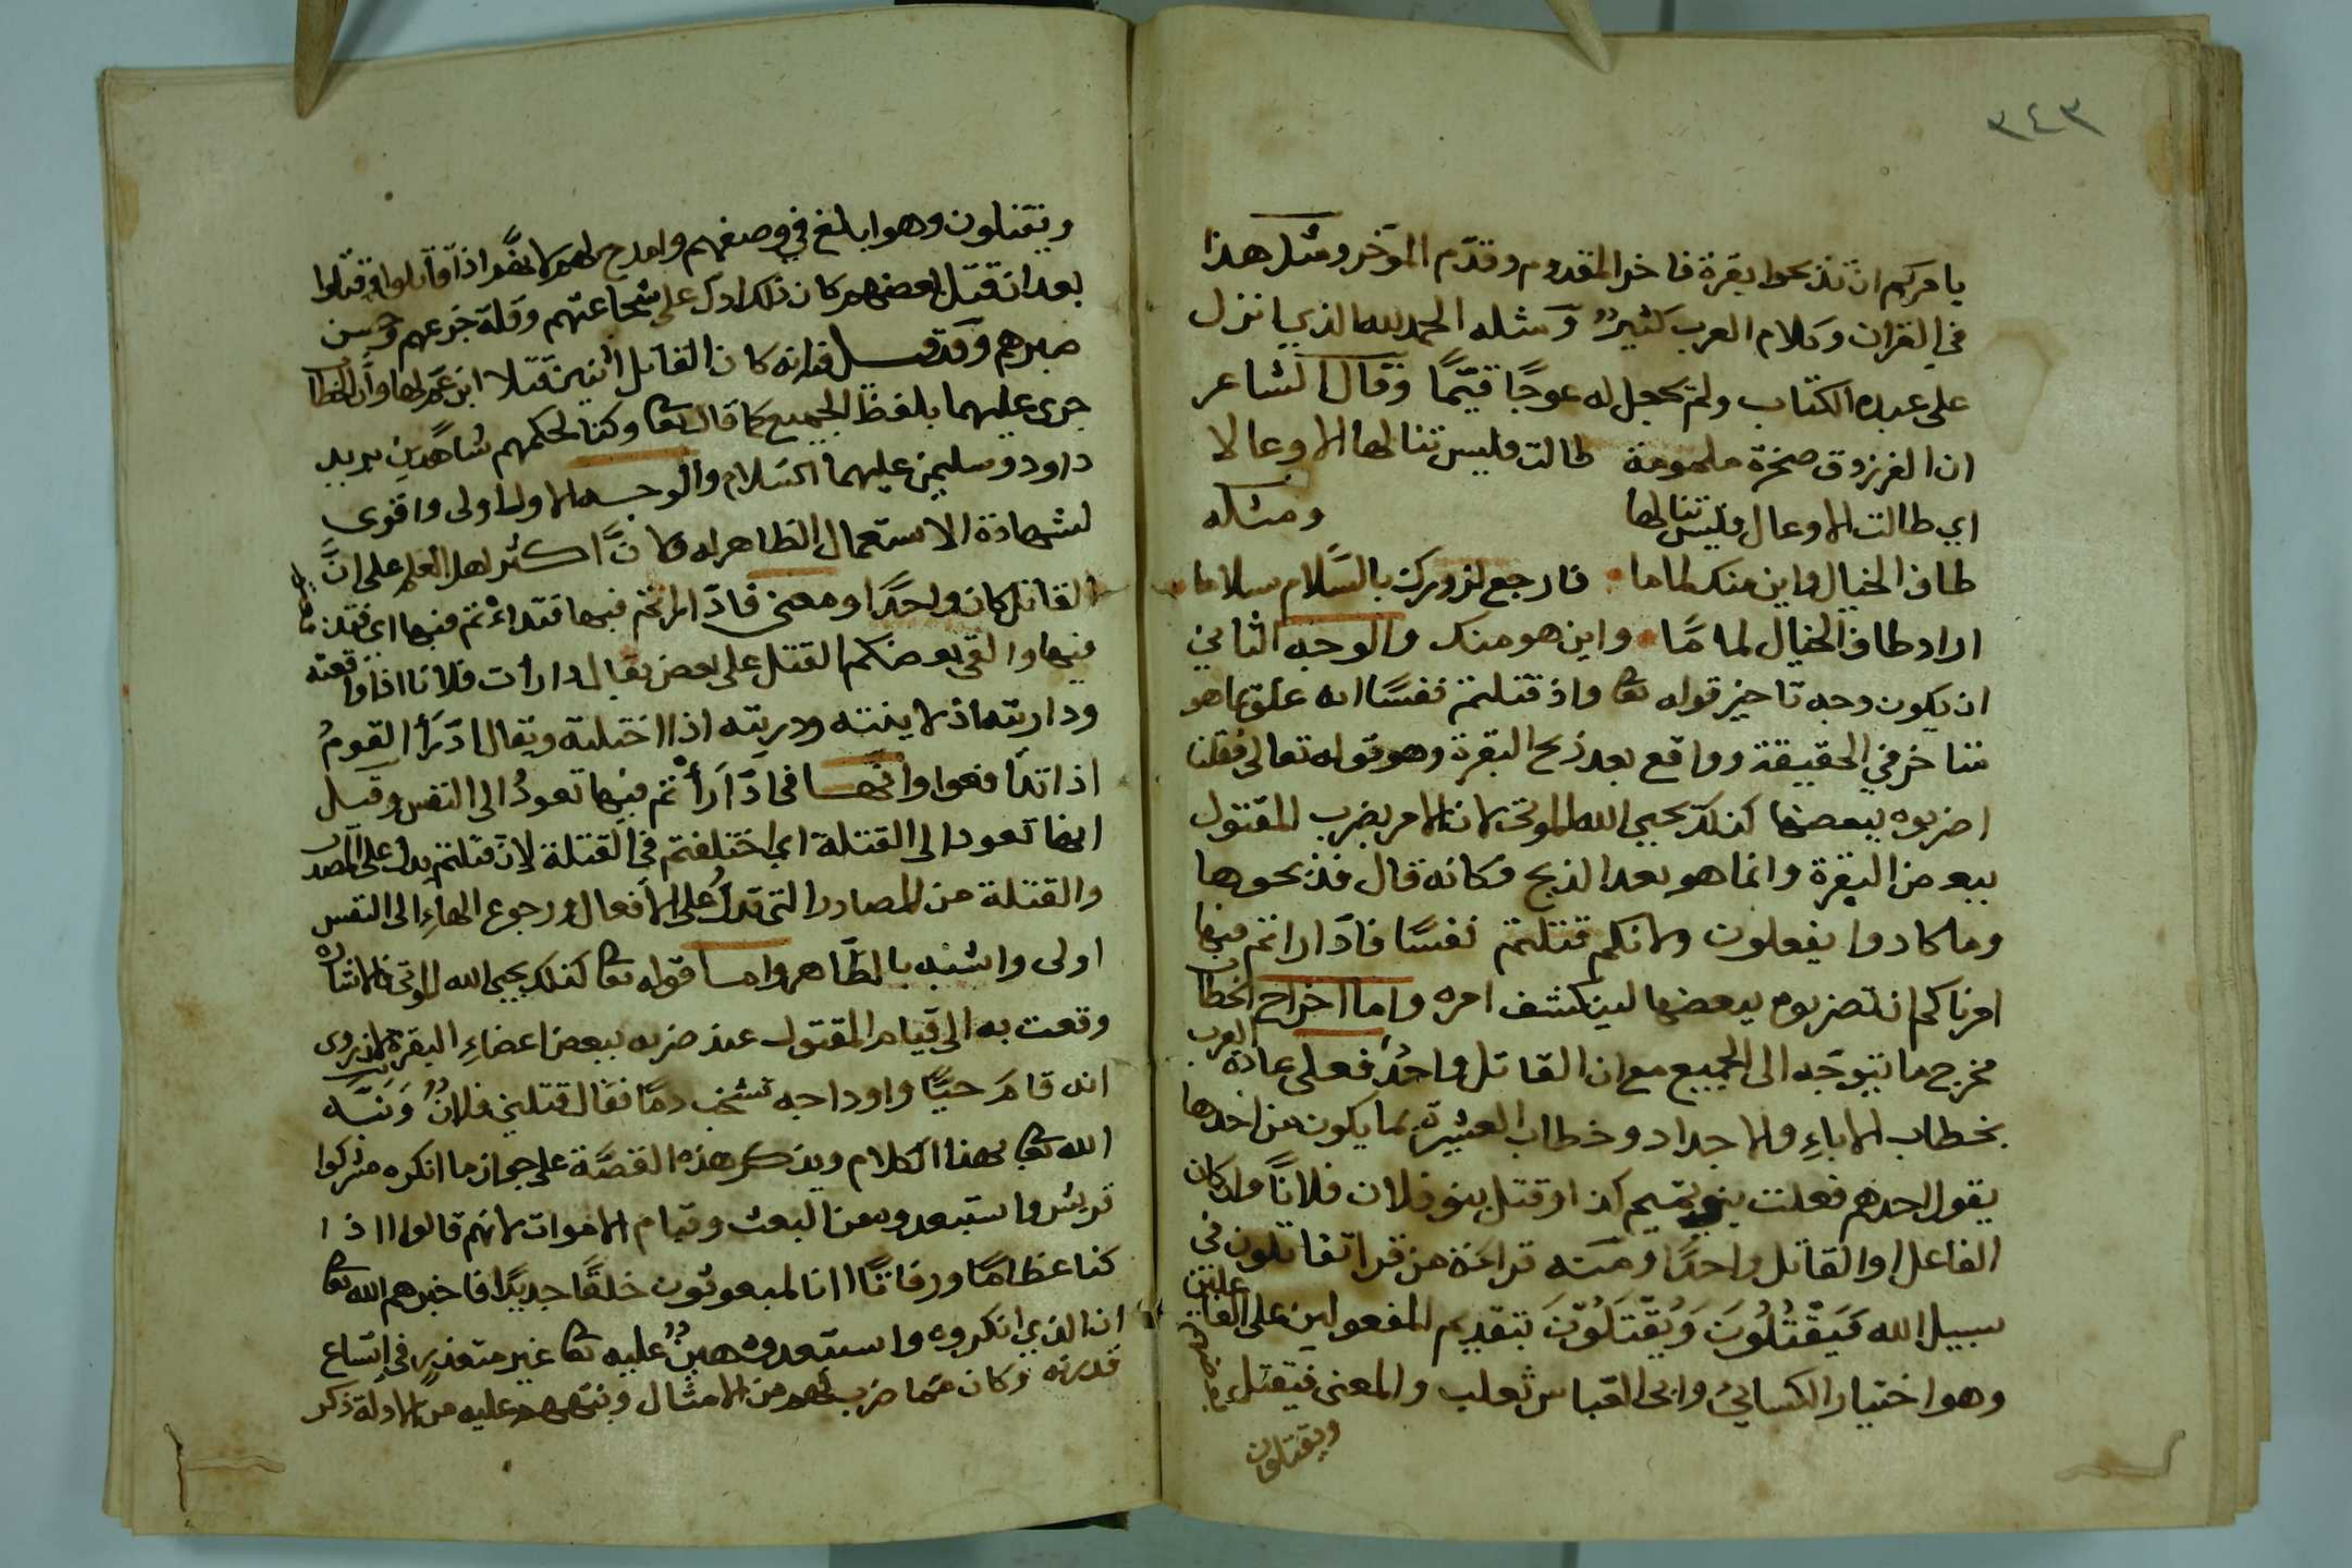 ٣٤٣
يامركم ان تذبحوا بقرة فاخر المقدم وقدّم المؤخر ومثل هذا
في القران وكلام العرب كثيرٌ ومثله الحمد لله الذي انزل
على عبده الكتاب ولم يجعل له عوجًا قيّمًا وقال الشاعر
ان الفرزدق صخرة ملمومة طالت فليس تنالها الاوعالا
اي طالت الاوعال فليس تنالها ومثله
طاف الخيال واين منك لماما فارجع لزورك بالسّلام سلاما
اراد طاف الخيال لمامًا واين هو منك والوجه الثاني
ان يكون وجه تاخير قوله تعا واذ قتلتم نفسًا انه علق بما هو
متاخر في الحقيقة وواقع بعد ذبح البقرة وهو قوله تعالى فقلنا
اضربوه ببعضها كذلك يحيي الله الموتى لان الامر بضرب المقتول
ببعض البقرة وانما هو بعد الذبح فكانه قال فذبحوها
وما كادوا يفعلون ولانكم قتلتم نفسًا فادّاراتم فيها
امرناكم ان تضربوه ببعضها لينكشف امره واما اخراج الخطاب
مخرج ما يتوجّه الى الجميع مع ان القاتل واحدٌ فعلى عادة العرب
بخطاب الاباءِ والاجداد وخطاب العشيرة بما يكون من احدها
يقول احدهم فعلت بنو تميم كذا وقتل بنو فلان فلانًا وان كان
الفاعل او القاتل واحدًا ومنه قراءة من قرا تقاتلون في
سبيل الله فَيَقْتُلُونَ وَيُقْتَلُوْنَ بتقديم المفعولين على الفاعلين
وهو اختيار الكسائي وابي العباس ثعلب والمعنى فيقتل بعضهم
ويقتلون
ويقتلون وهو ابلغ في وصفهم وامدح لهم لانهم اذا قاتلوا وقتلوا
بعد ان قتل بعضهم كان ذلك ادلّ على شجاعتهم وقلة جزعهم وحسن
صبرهم وقد قيل فانه كان القاتل اثنين قتلا ابن عم لهما وأنّ الخطاب
جرى عليهما بلفظ الجميع كما قال تعا وكنا لحكمهم شاهدين يريد
داود وسليمن عليهما السّلام والوجه الاول اولى واقوى
لشهادة الاستعمال الظاهر له ولانّ اكثر اهل العلم على انّ
القاتل كان واحدًا ومعنى فادّاراتم فيها فتداراتم فيها اي تدافعتم
فيها والقى بعضكم القتل على بعض يقال دارات فلانا اذا دافعته
وداريته اذا لاينته ودريته اذا اختلته ويقال ادّرَأ القومُ
اذا تدافعوا والهاء في ادّارَأْتم فيها تعودُ الى النفس وقيل
انها تعود الى القتلة اي اختلفتم في القتلة لان قتلتم يدل على المصدر
والقتلة من المصادر التي تدلُّ على الافعال ورجوع الهاءِ الى النفس
اولى واشبه بالظّاهر واما قوله تعا كذلك يحيي الله الموتى فالاشارة
وقعت به الى قيام المقتول عند ضربه ببعض اعضاءِ البقرة لانه روي
انه قامَ حيًّا واوداجه تشخب دمًا فقال قتلني فلانٌ وَنبّه
الله تعا بهذا الكلام وبذكر هذه القصّة على جواز ما انكره مشركوا
قريش واستبعدوه من البعث وقيام الاموات لانهم قالوا اذا
كنا عظامًا ورفاتًا انا لمبعوثون خلقًا جديدًا فاخبرهم الله تعا
ان الذي انكروه واستبعدوه هينٌ عليه تعا غير متعذرٍ في اتّساع
قدرته وكان ممّا ضرب لهم من الامثال ونبّههم عليه من الادلة ذكر